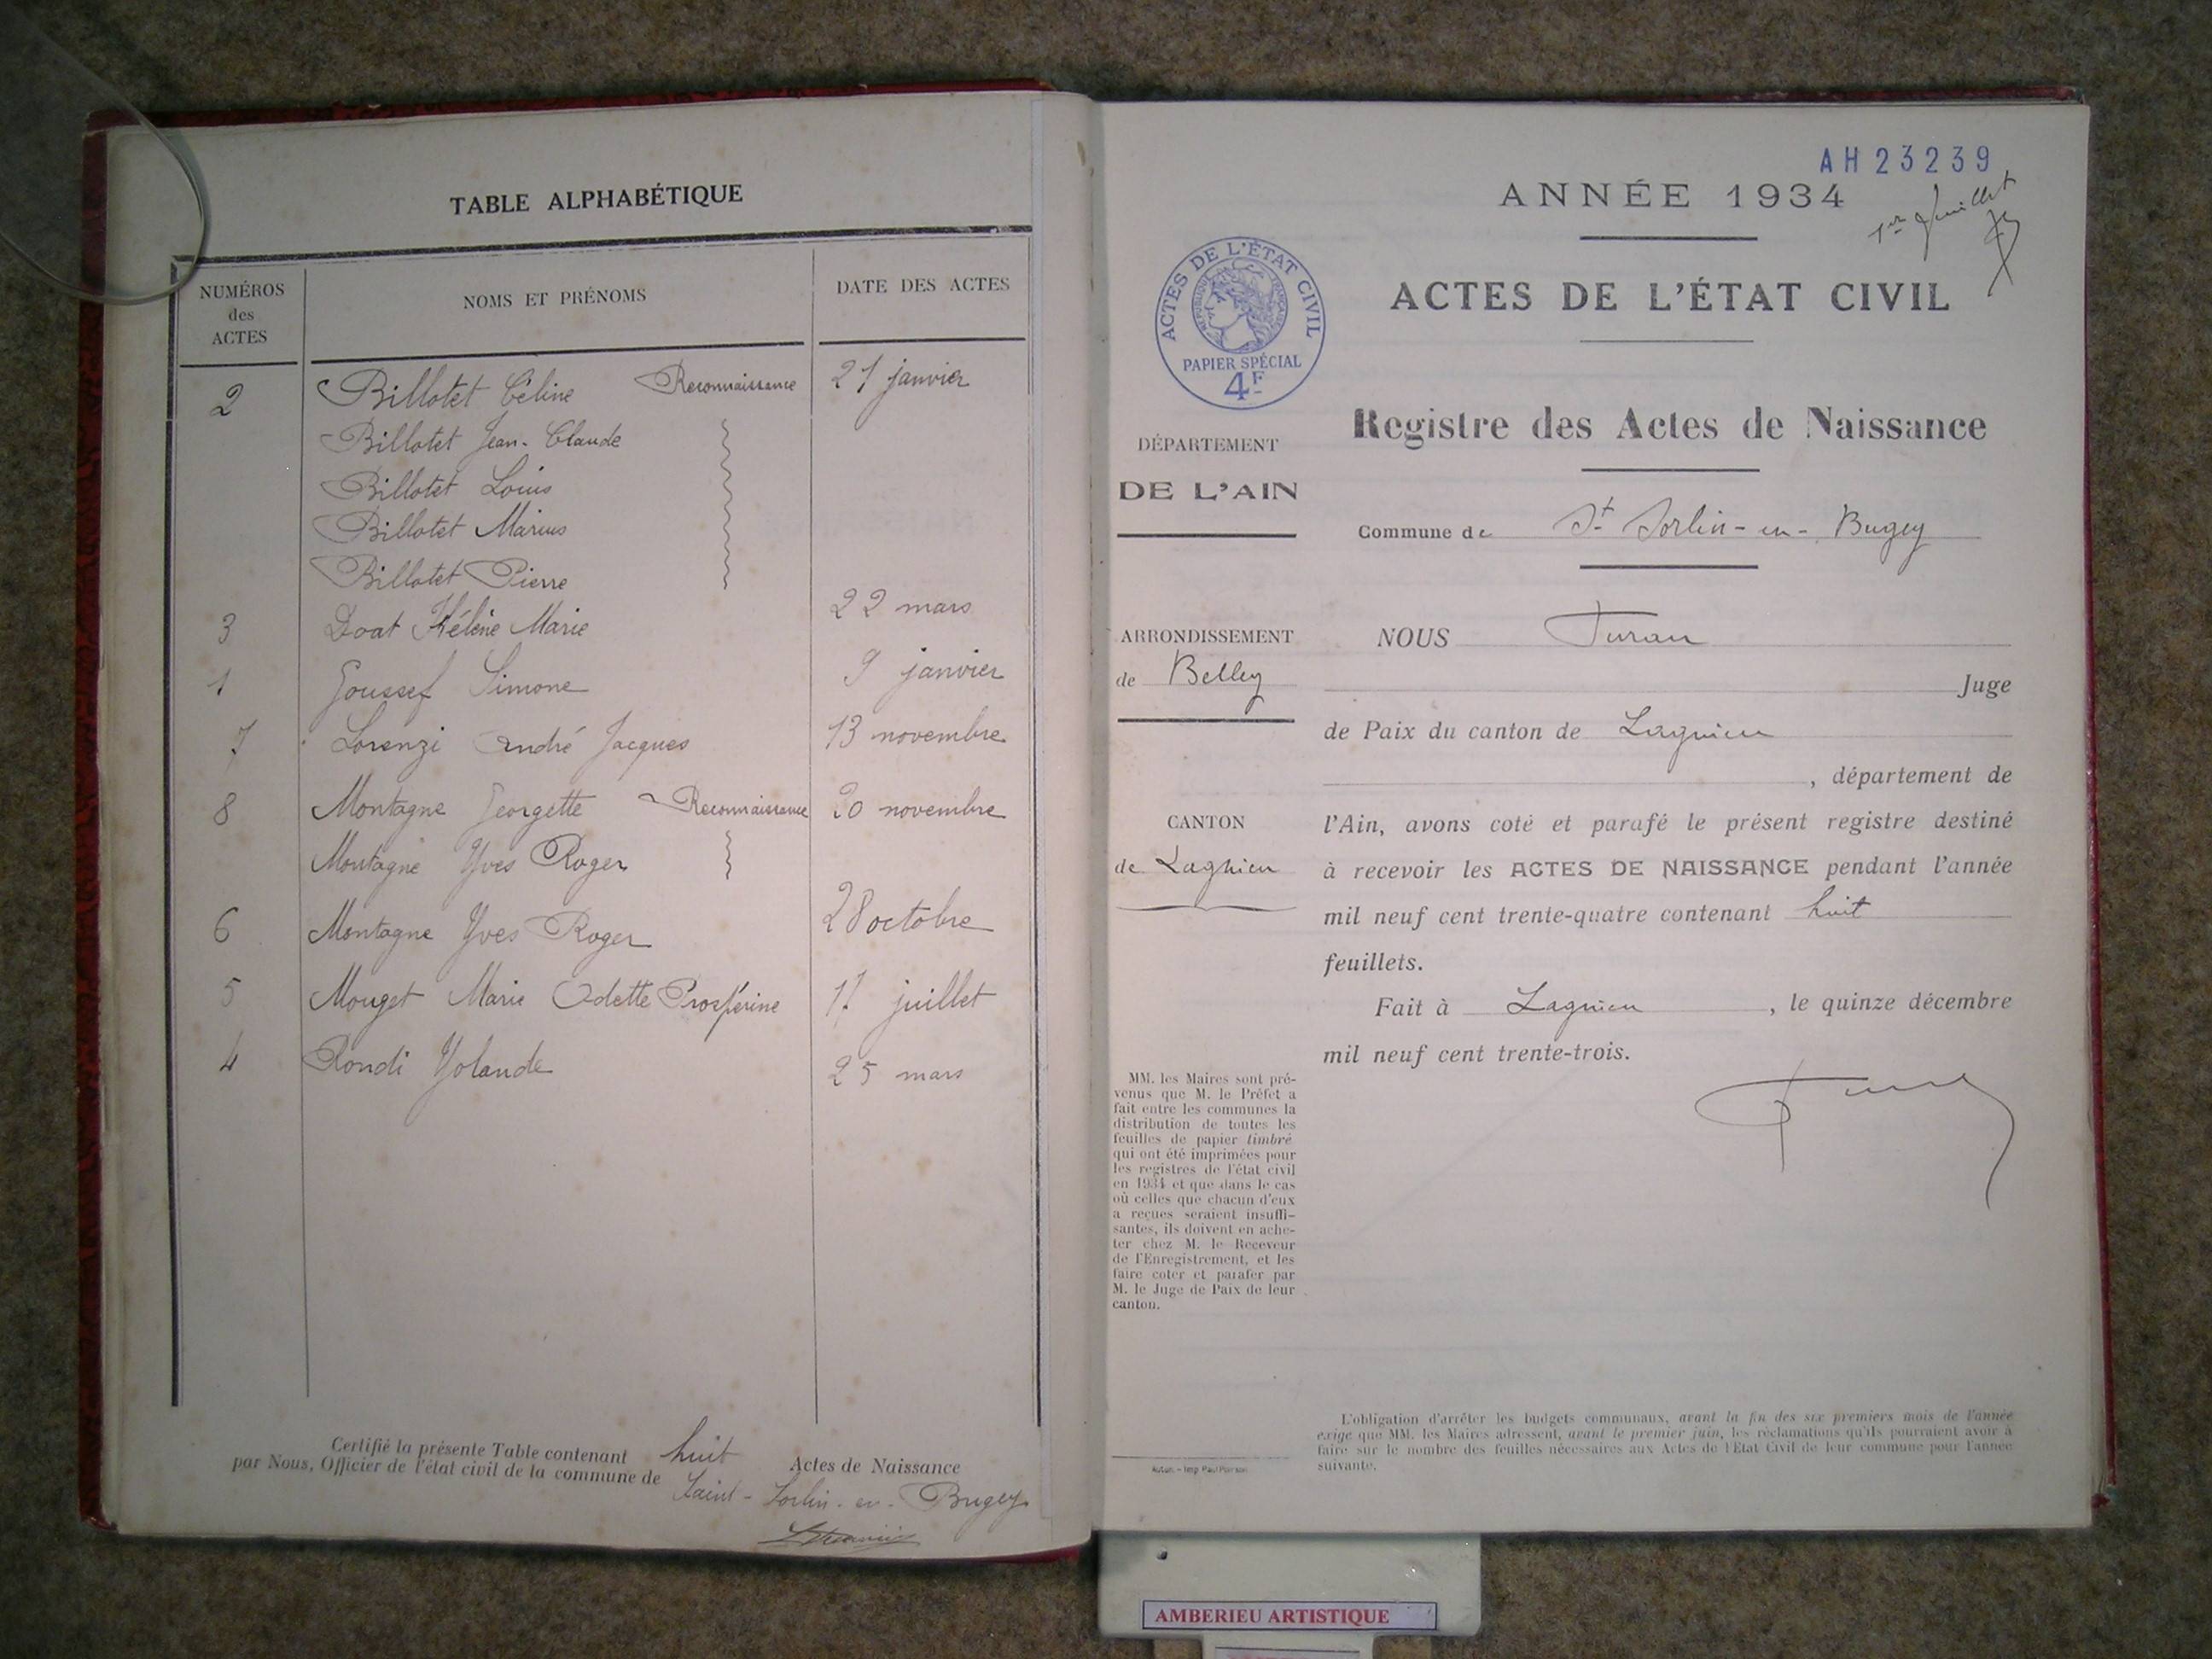 TABLE ALPHABÉTIQUE
NUMÉROS des ACTES
NOMS ET PRÉNOMS
DATE DES ACTES
2 Billotet Céline Reconnaissance 21 janvier
Billotet Jean-Claude
Billotet Louis
Billotet Marius
Billotet Pierre
3 Doat Hélène Marie 22 mars
1 Goussef Simone 9 janvier
7 Lorenzi André Jacques 13 novembre
8 Montagne Georgette Reconnaissance 20 novembre
Montagne Yves Roger
6 Montagne Yves Roger 28 octobre
5 Mouget Marie Odette Prospérine 17 juillet
4 Rondi Yolande 25 mars
Certifié la présente Table contenant huit Actes de Naissance
par Nous, Officier de l'état civil de la commune de Saint-Sorlin-en-Bugey
AH23239
ANNÉE 1934
1er feuillet
ACTES DE L'ÉTAT CIVIL
ACTES DE L'ÉTAT CIVIL
RÉPUBLIQUE FRANÇAISE
PAPIER SPÉCIAL
4F
Registre des Actes de Naissance
DÉPARTEMENT
DE L'AIN
Commune de St Sorlin-en-Bugey
ARRONDISSEMENT
de Belley
CANTON
de Lagnieu
NOUS
Juge
de Paix du canton de Lagnieu
, département de
l'Ain, avons coté et parafé le présent registre destiné
à recevoir les ACTES DE NAISSANCE pendant l'année
mil neuf cent trente-quatre contenant huit
feuillets.
Fait à Lagnieu, le quinze décembre
mil neuf cent trente-trois.
MM. les Maires sont pré-
venus que M. le Préfet a
fait entre les communes la
distribution de toutes les
feuilles de papier timbré
qui ont été imprimées pour
les registres de l'état civil
en 1934 et que dans le cas
où celles que chacun d'eux
a reçues seraient insuffi-
santes, ils doivent en ache-
ter chez M. le Receveur
de l'Enregistrement, et les
faire coter et parafer par
M. le Juge de Paix de leur
canton.
L'obligation d'arrêter les budgets communaux, avant la fin des six premiers mois de l'année
exige que MM. les Maires adressent, avant le premier juin, les réclamations qu'ils pourraient avoir à
faire sur le nombre des feuilles nécessaires aux Actes de l'Etat Civil de leur commune pour l'année
suivante.
Autun. - Imp. Paul
AMBERIEU ARTISTIQUE